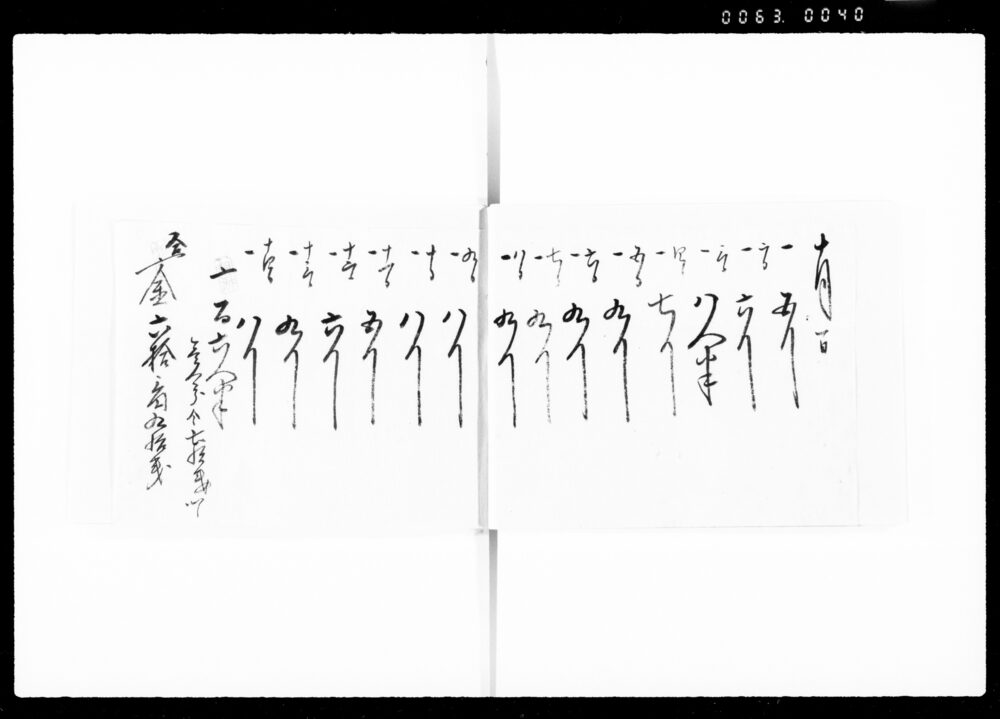 0063. 0040
十月一日
一 五人
一二日 六人
一三日 八人半
一四日 七人
一五日 九人
一六日 九人
一七日 九人
一八日 九人
一九日 八人
一十日 八人
一十一日 五人
一十二日 六人
一十三日 九人
一十四日 八人
一百六人半
壱人分 六拾銭ツヽ
金六拾三円九拾銭